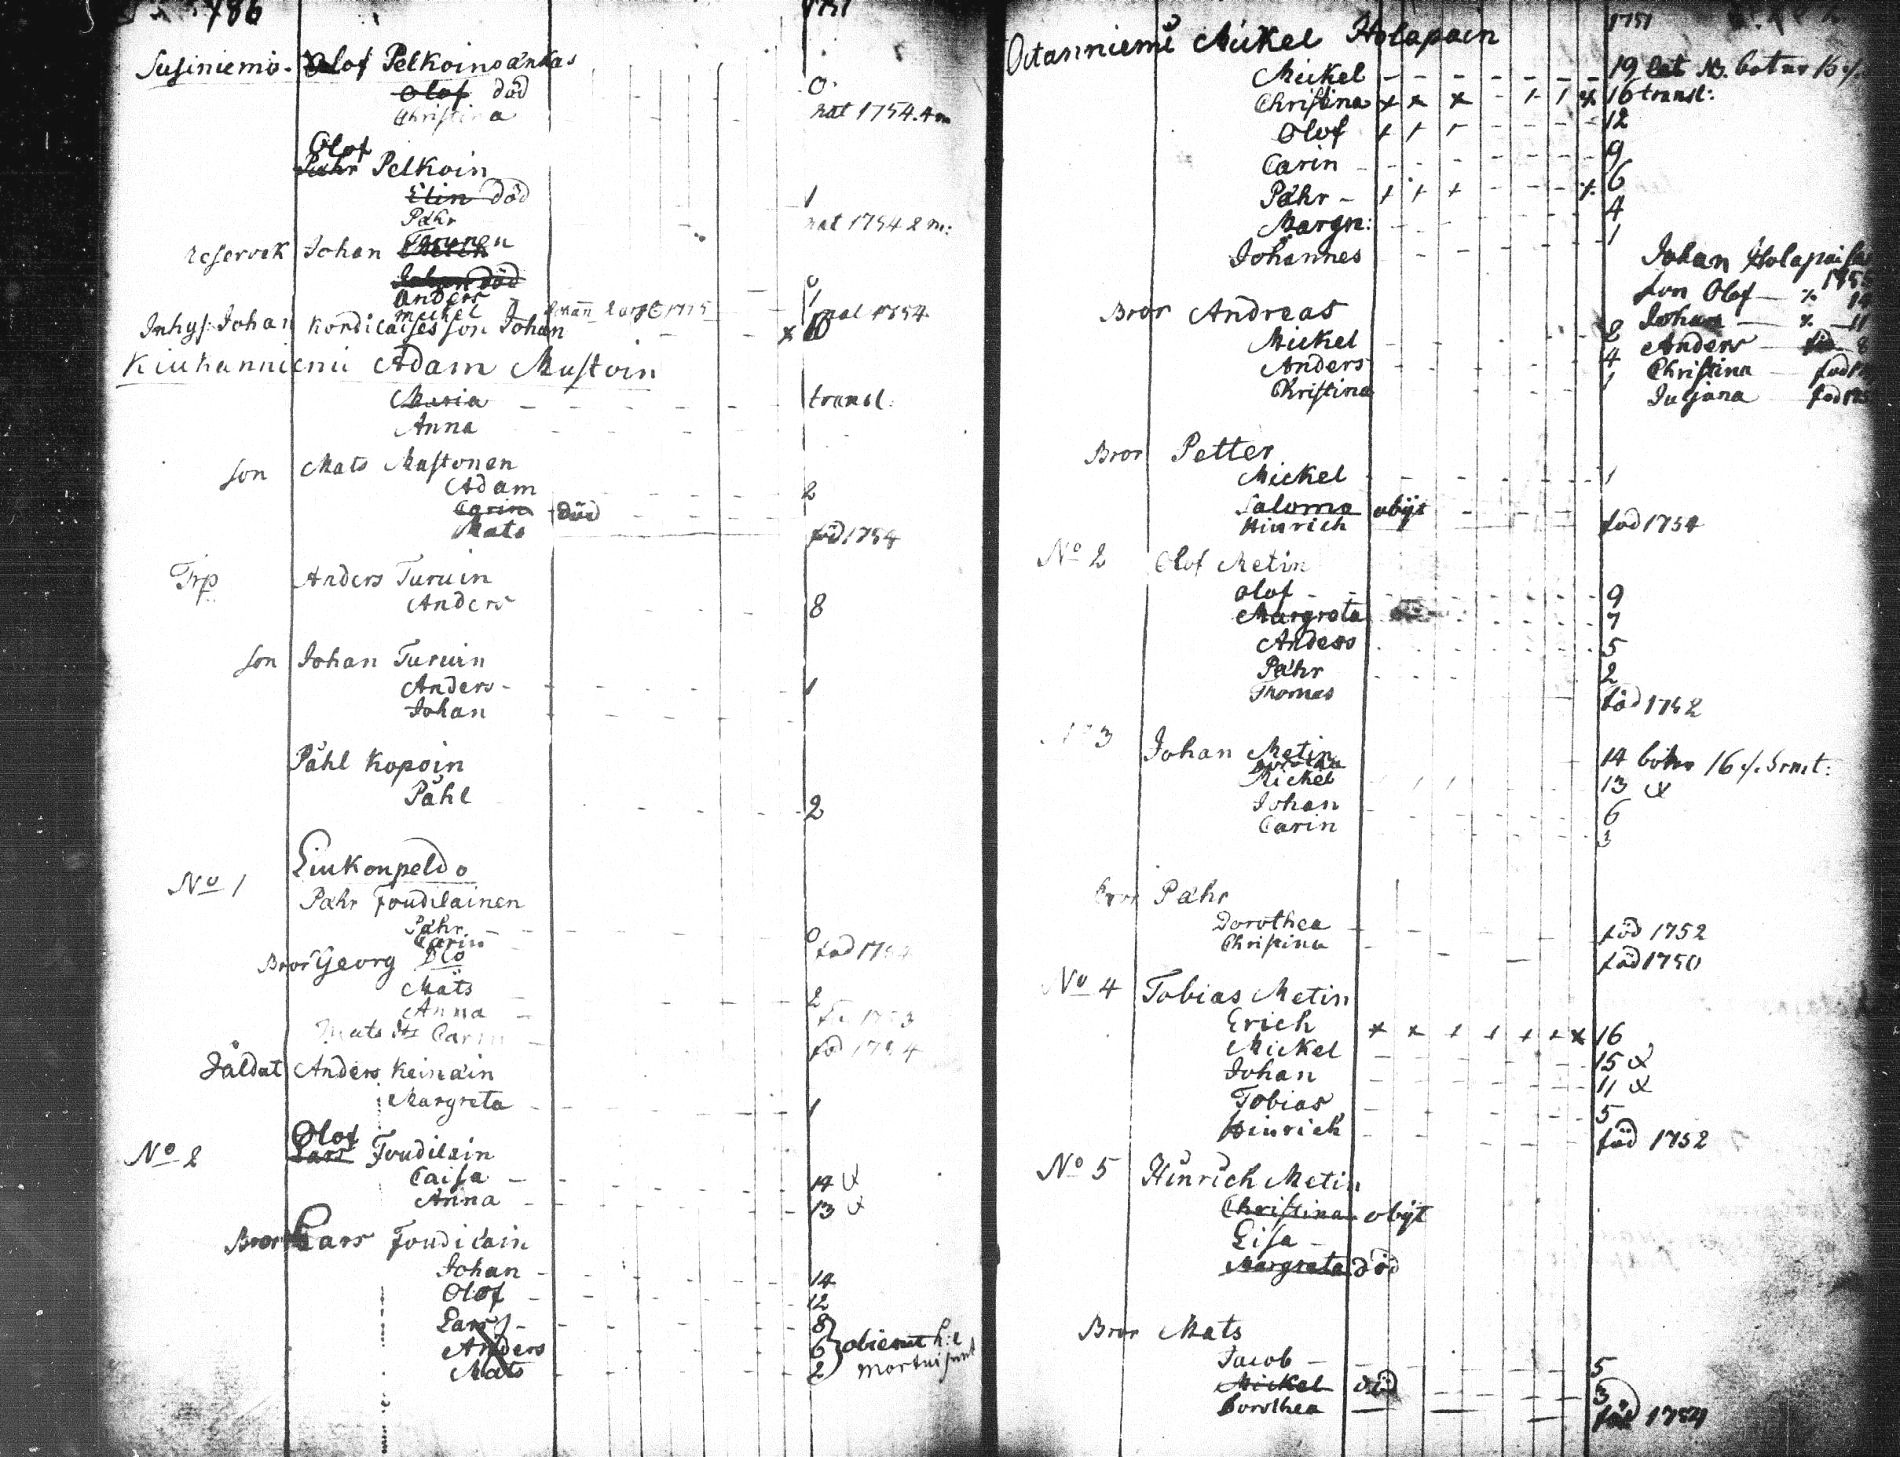 786
1751
Susiniemi. Olof Pelkoins änkas
Olof död 0
Christina nat 1754. 4 m
Olof
Påhr Pelkoin
Elin död 1
Pähr nat 1754 2 m:
reservek Johan Turunen
Johan död 0
Anders 1
Mickel nat 1754
Inhys: Johan Kordilaises son Johan × 10
Kiukanniemi Adam Mustoin
Maria transl:
Anna
son Mats Mustonen
Adam 2
Carin död
Mats född 1754
Trp Anders Turuin
Anders 8
son Johan Turuin
Anders 1
Johan
Påhl Kopoin
Påhl 2
Liukonpeldo
No 1
Pähr Foudilainen
Pähr 0
Carin föd
Bror Georg Do
Mats 2
Anna 1753
Mats Carin föd 1754
Såldat Anders Keinäin
Margreta 1
Olof
No 2 Lars Foudilain
Caisa 14
Anna 13
Bror Lars Foudilain
Johan 14
Olof 12
Lars 8
Anders 6 obierut h:e
Mats 2 mortui sunt
1751
Otanniemi Mickel Holapain
Mickel 19
Christina × × × 16 transl:
Olof 12
Carin 9
Pähr 6
Margr: 4
Johannes 1
Johan Holapai
son Olof 14
Johan 11
Anders 8
Christina föd
Juljana föd
Bror Andreas
Mickel 8
Anders 4
Christina 1
Bror Petter
Mickel 1
Saloma obijt
Hinrich föd 1754
No 2 Olof Metin
Olof 9
Margreta 7
Anders 5
Pähr 2
Thomas föd 1752
3 Johan Metin
Dorothea 14
Mickel 13
Johan 6
Carin 3
Bror Pähr
Dorothea föd 1752
Christina föd 1750
No 4 Tobias Metin
Erich × × × × × × × 16
Mickel 15
Johan 11
Tobias 5
Hinrich föd 1752
No 5 Hinrich Metin
Christina obijt
Lisa
Margreta död
Bror Mats
Jacob 5
Mickel död 3
Dorothea föd 1754